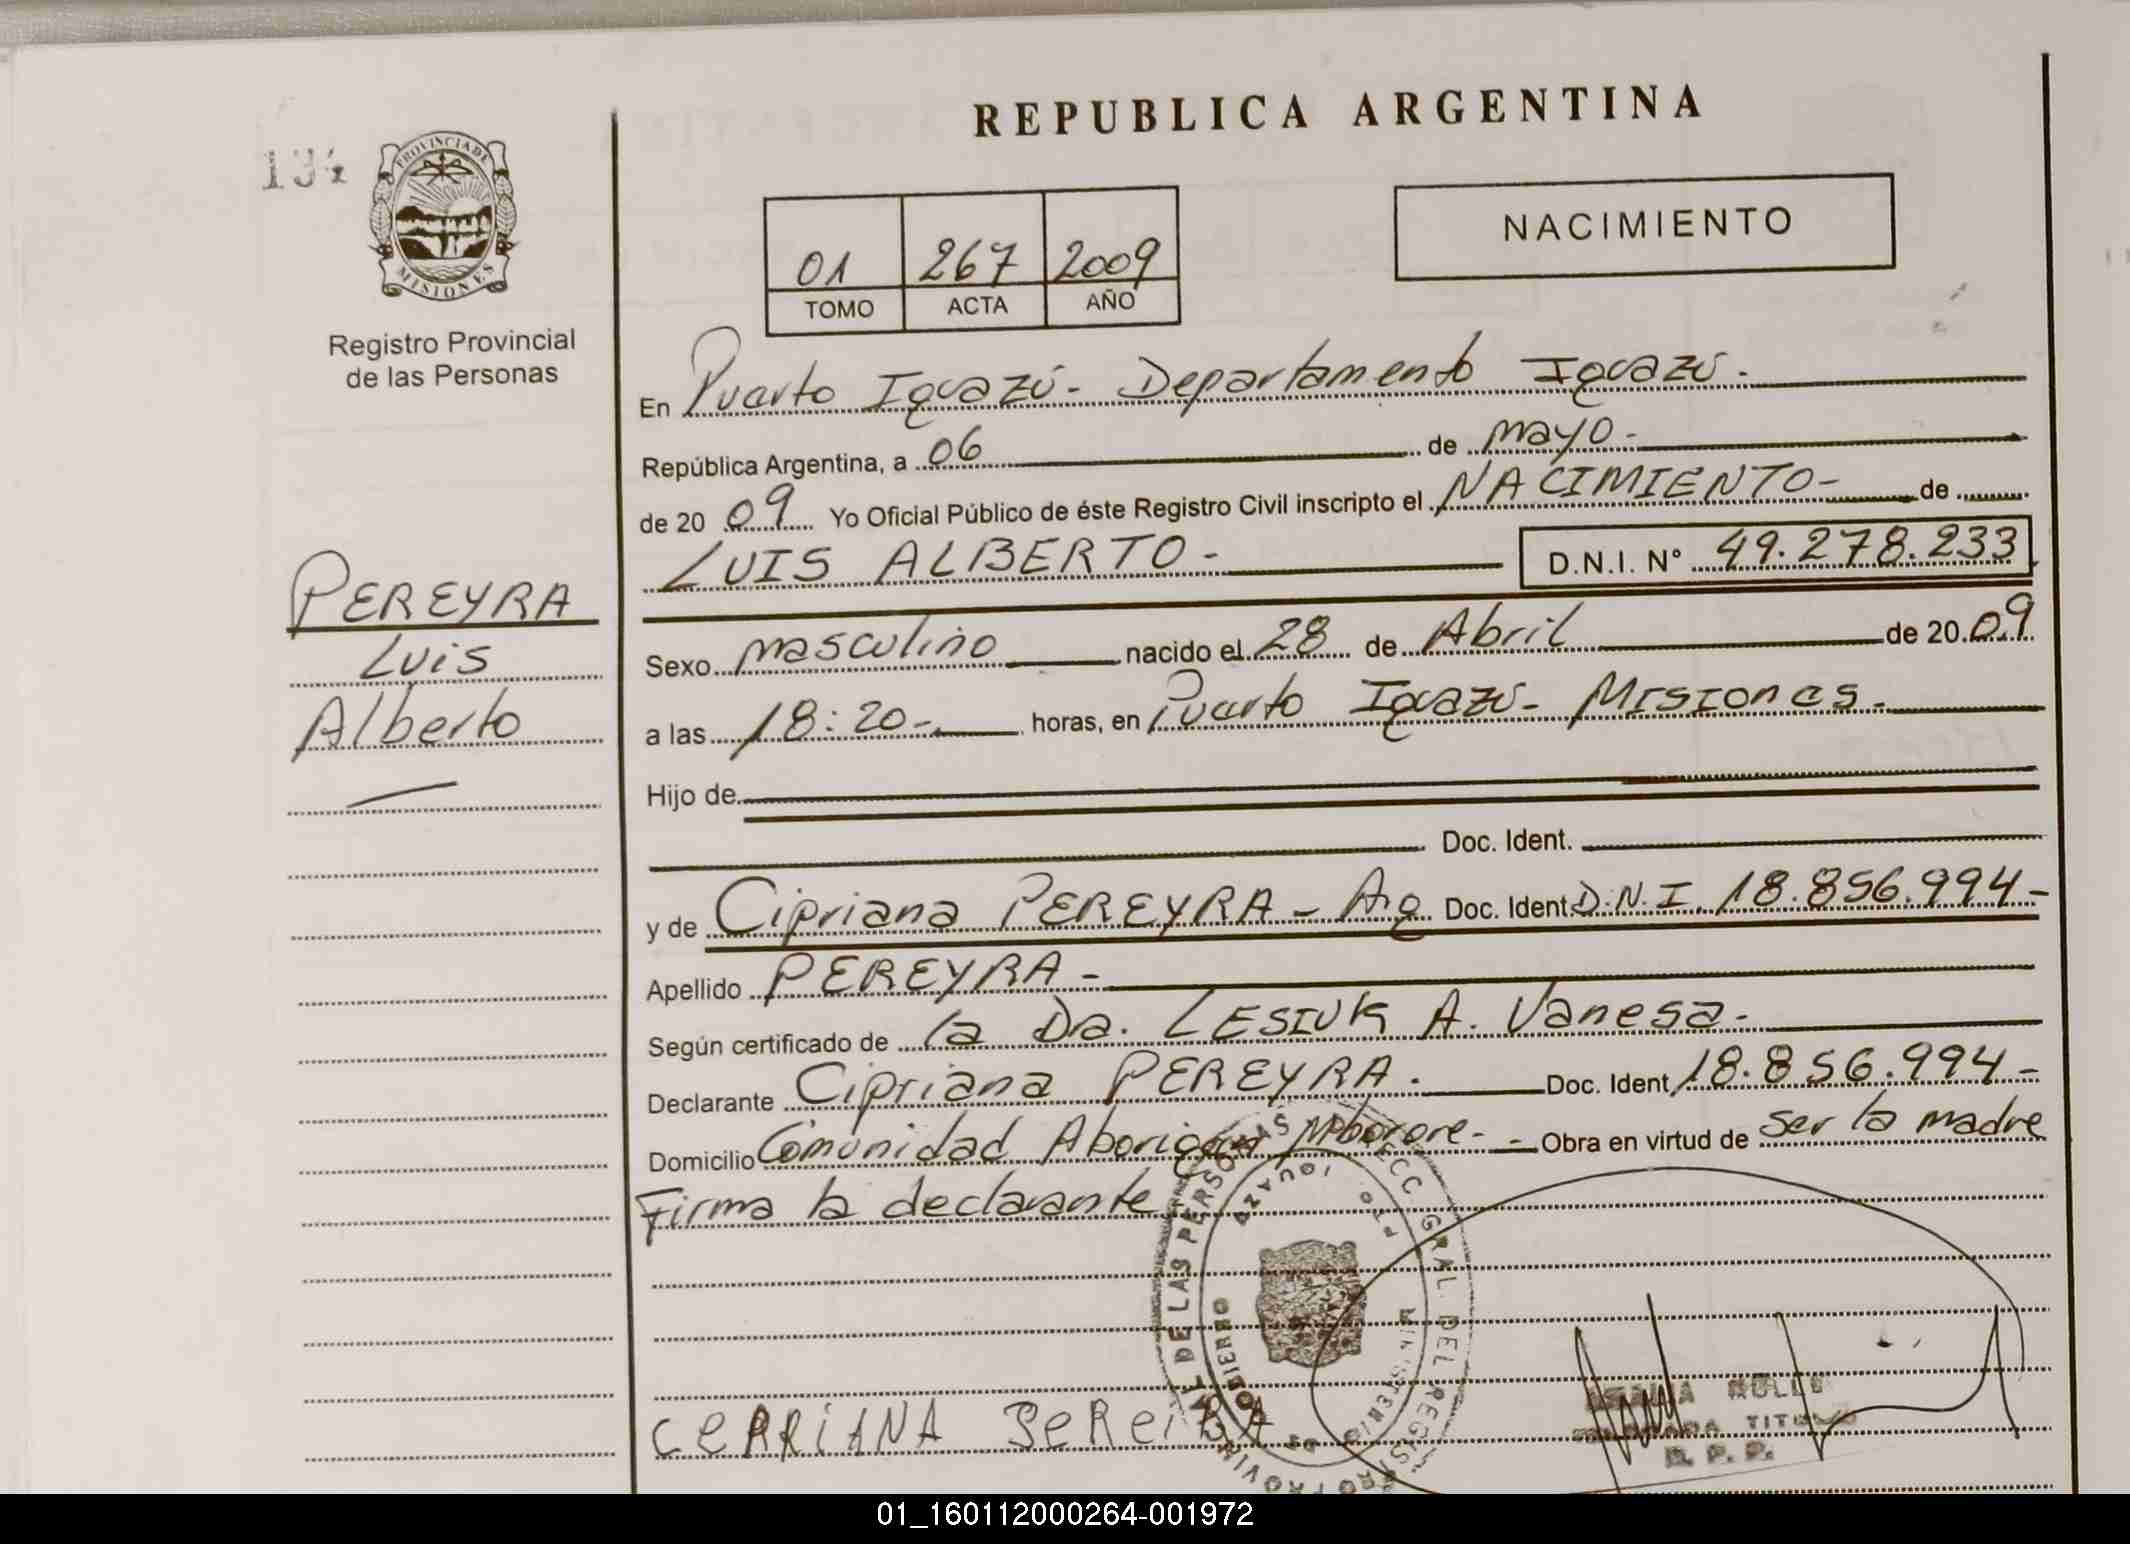 REPUBLICA ARGENTINA
PROVINCIA DE
MISIONES
Registro Provincial
de las Personas
01 267 2009
TOMO ACTA AÑO
NACIMIENTO
PEREYRA
Luis
Alberto
En Puerto Iguazú - Departamento Iguazú -
República Argentina, a 06 de mayo -
de 20 09 Yo Oficial Público de éste Registro Civil inscripto el NACIMIENTO - de
LUIS ALBERTO - D.N.I. N° 49.278.233
Sexo masculino nacido el 28 de Abril de 20 09
a las 18:20 - horas, en Puerto Iguazú - Misiones -
Hijo de
Doc. Ident.
y de Cipriana PEREYRA - Arg Doc. Ident D.N.I. 18.856.994 -
Apellido PEREYRA -
Según certificado de la Dra. LESIUK A. Vanesa -
Declarante Cipriana PEREYRA . Doc. Ident 18.856.994 -
Domicilio Comunidad Aborigen Mborore - - Obra en virtud de ser la madre
Firma la declarante
CERRiANA PeReiRA
TITULAR
R. P. P.
01_160112000264-001972